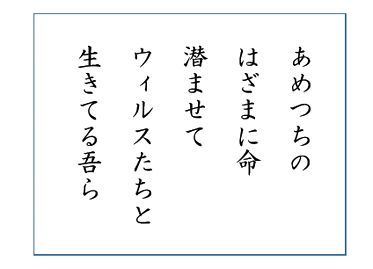 あめつちの
はざまに命
潜ませて
ウィルスたちと
生きてる吾ら